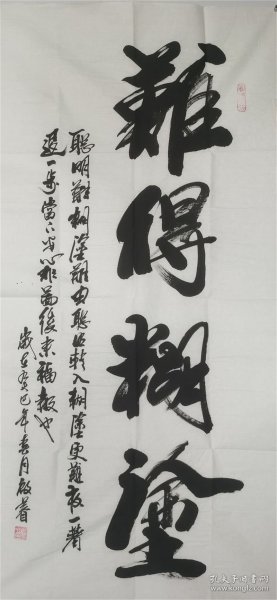 難得糊塗
聰明難糊塗難由聰明轉入糊塗更難放一著
退一步當下安心非圖後來福報也
歲在癸巳年春月
孔夫子旧书网